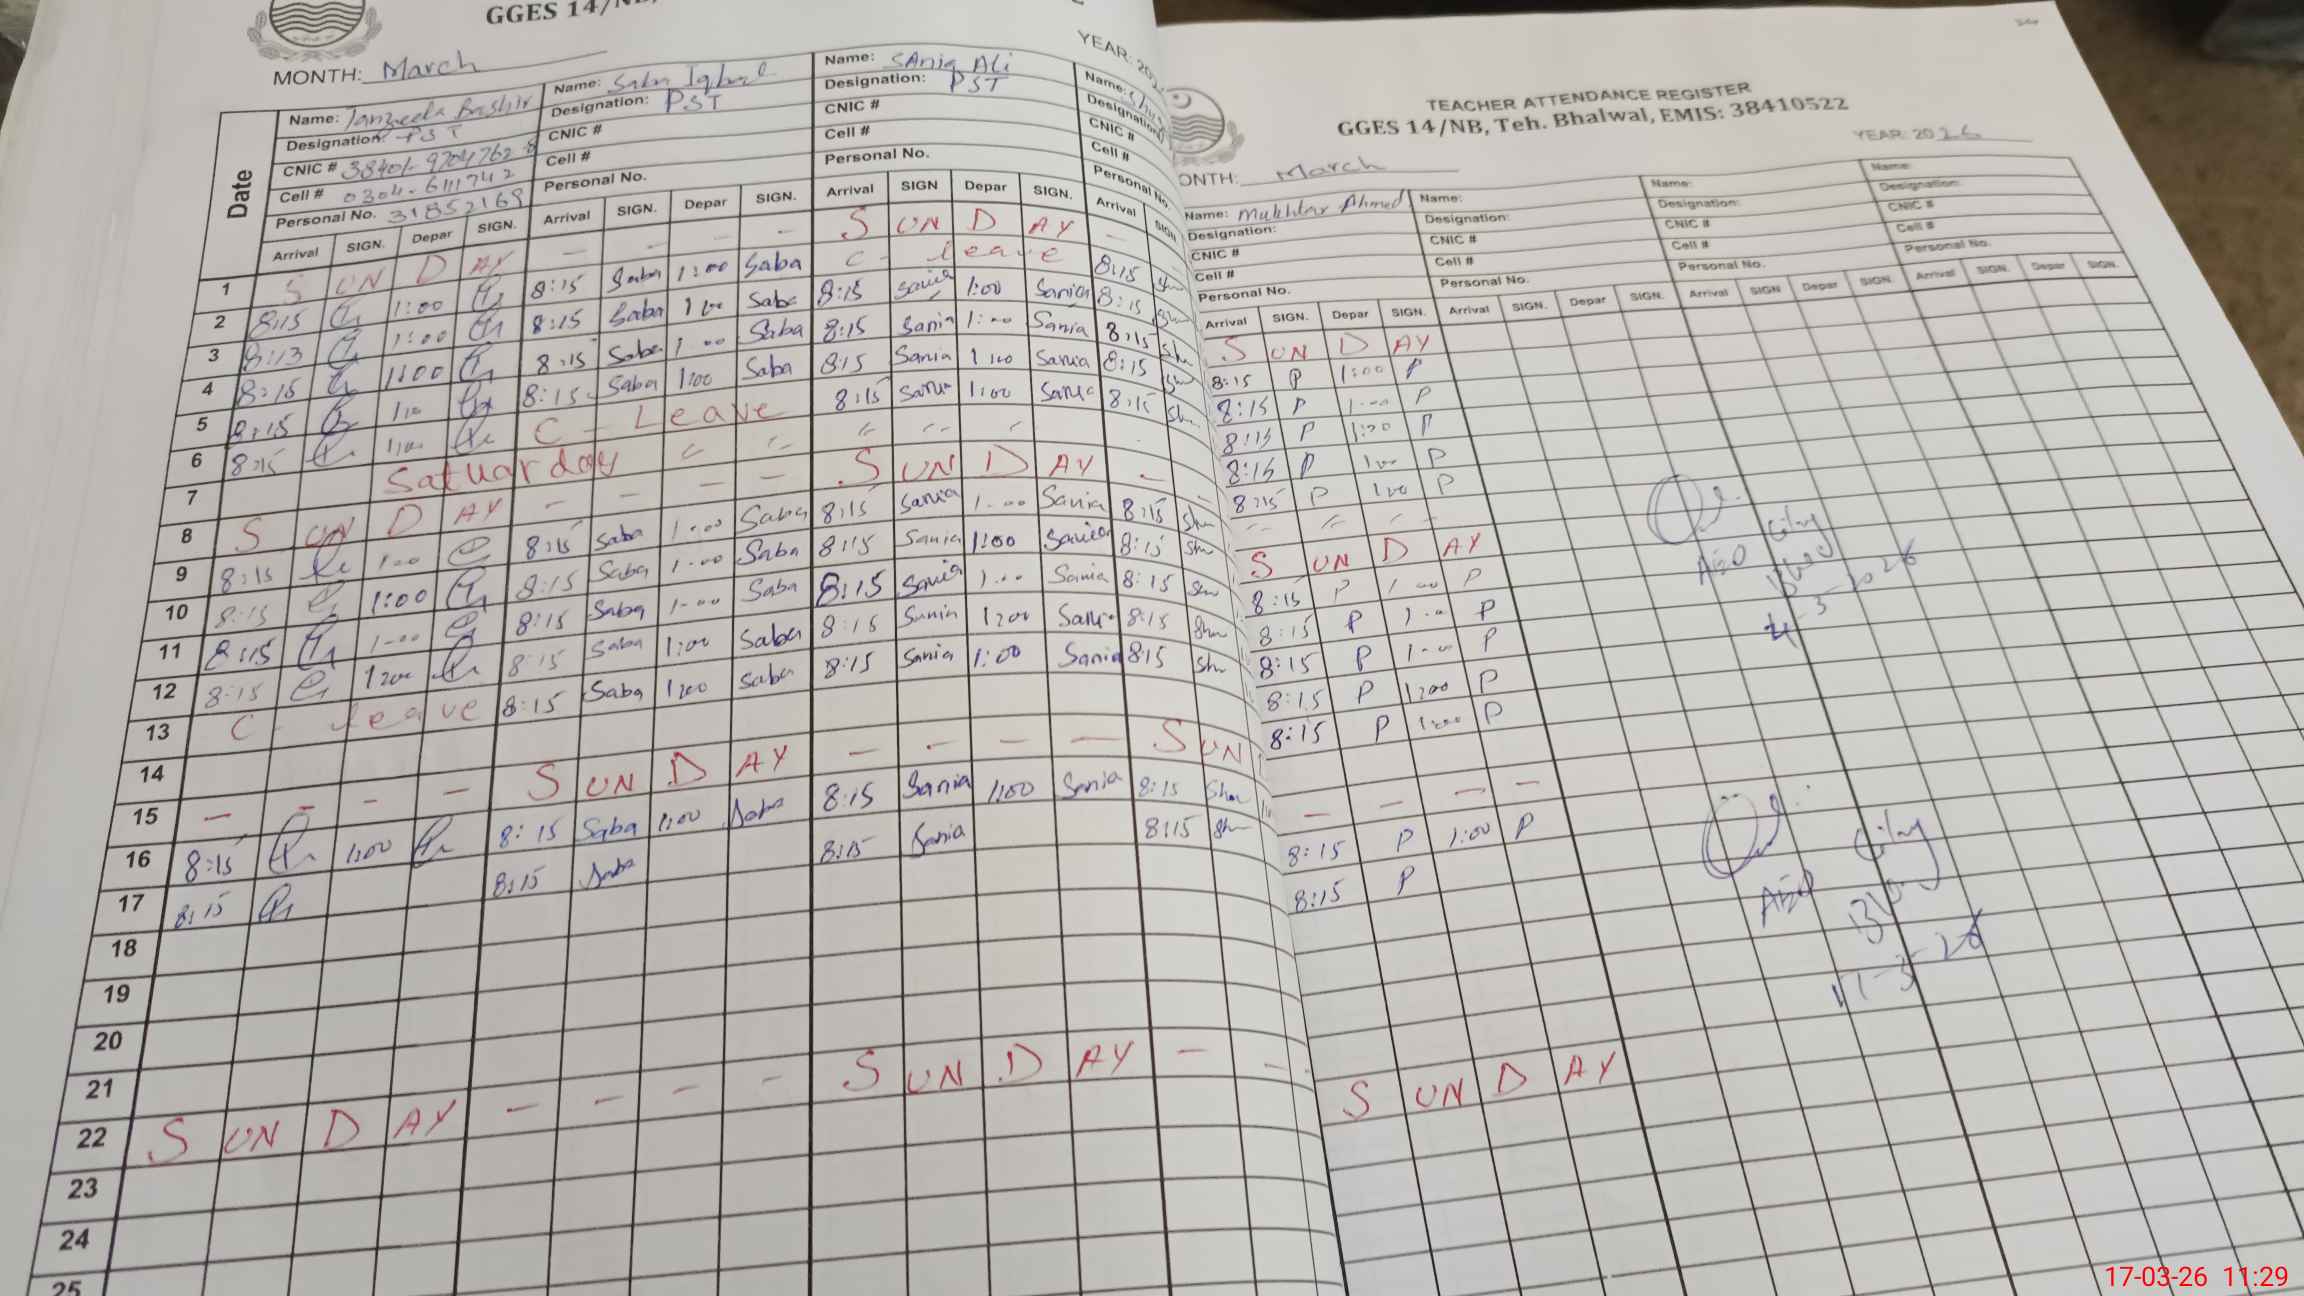 GGES 14/NB,
MONTH: March
YEAR: 202
Date
Name: Tanzeela Bashir
Designation: PST
CNIC # 38401-9704762-8
Cell # 0304-6111742
Personal No. 31852169
Arrival SIGN. Depar SIGN.
Name: Saba Iqbal
Designation: PST
CNIC #
Cell #
Personal No.
Arrival SIGN. Depar SIGN.
Name: SAnia ALi
Designation: PST
CNIC #
Cell #
Personal No.
Arrival SIGN Depar SIGN.
Name:
Designation
CNIC #
Cell #
Personal No.
Arrival SIGN
1 S UN D AY - - - - S UN D AY -
2 8:15 1:00 8:15 Saba 1:00 Saba C - leave 8:15 Sh
3 8:13 1:00 8:15 Saba 1:00 Saba 8:15 Sania 1:00 Sania 8:15 Sh
4 8:15 1:00 8:15 Saba 1:00 Saba 8:15 Sania 1:00 Sania 8:15 Sh
5 8:15 1:00 8:15 Saba 1:00 Saba 8:15 Sania 1:00 Sania 8:15 Sh
6 8:15 1:00 C - Leave 8:15 Sania 1:00 Sania 8:15 Sh
7 Satuarday
8 S UN D AY - - - - S UN D AY -
9 8:15 1:00 8:15 Saba 1:00 Saba 8:15 Sania 1:00 Sania 8:15 Sh
10 8:15 1:00 8:15 Saba 1:00 Saba 8:15 Sania 1:00 Sania 8:15 Sh
11 8:15 1:00 8:15 Saba 1:00 Saba 8:15 Sania 1:00 Sania 8:15 Sh
12 8:15 1:00 8:15 Saba 1:00 Saba 8:15 Sania 1:00 Sania 8:15 Sh
13 C - leave 8:15 Saba 1:00 Saba 8:15 Sania 1:00 Sania 8:15 Sh
14
15 - - - - S UN D AY - - - - S UN
16 8:15 1:00 8:15 Saba 1:00 Saba 8:15 Sania 1:00 Sania 8:15 Sha
17 8:15 8:15 Saba 8:15 Sania 8:15 Sh
18
19
20
21
22 S UN D AY - - - - S UN D AY - -
23
24
25
TEACHER ATTENDANCE REGISTER
GGES 14/NB, Teh. Bhalwal, EMIS: 38410522
YEAR: 2026
ONTH: March
Name: Mukhtar Ahmed
Designation:
CNIC #
Cell #
Personal No.
Arrival SIGN. Depar SIGN.
Name:
Designation:
CNIC #
Cell #
Personal No.
Arrival SIGN. Depar SIGN.
Name:
Designation:
CNIC #
Cell #
Personal No.
Arrival SIGN Depar SIGN.
Name:
Designation:
CNIC #
Cell #
Personal No.
Arrival SIGN. Depar SIGN.
S UN D AY
8:15 P 1:00 P
8:15 P 1:00 P
8:15 P 1:00 P
8:15 P 1:00 P
8:15 P 1:00 P
S UN D AY
8:15 P 1:00 P
8:15 P 1:00 P
8:15 P 1:00 P
8:15 P 1:00 P
8:15 P 1:00 P
- - - -
8:15 P 1:00 P
8:15 P
S UN D AY
AEO
4-3-2026
AEO
17-3-26
17-03-26 11:29